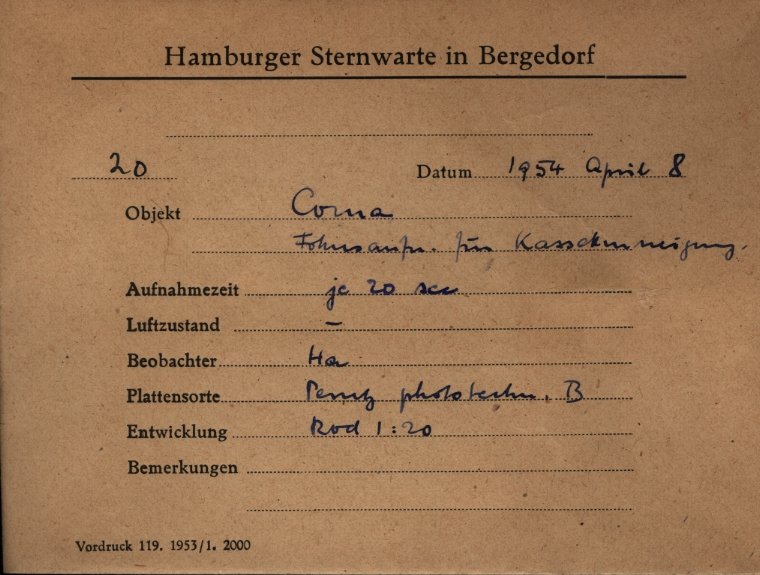 Hamburger Sternwarte in Bergedorf
20 Datum 1954 April 8
Objekt Coma
für Kassettenneigung.
Aufnahmezeit je 20 sec
Luftzustand –
Beobachter Ha
Plattensorte Perutz phototechn. B
Entwicklung Rod 1:20
Bemerkungen
Vordruck 119. 1953/1. 2000